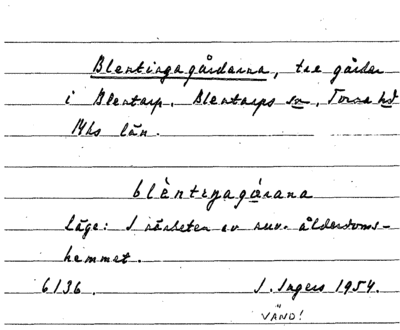 Blentingagårdarna, tre gårdar
i Blentarp. Blentarps sn, Torna hd
Mhs län.
blèntiŋagår̀ana
Läge: I närheten av nuv. ålderdoms-
hemmet.
6136. I. Ingers 1954.
VÄND!